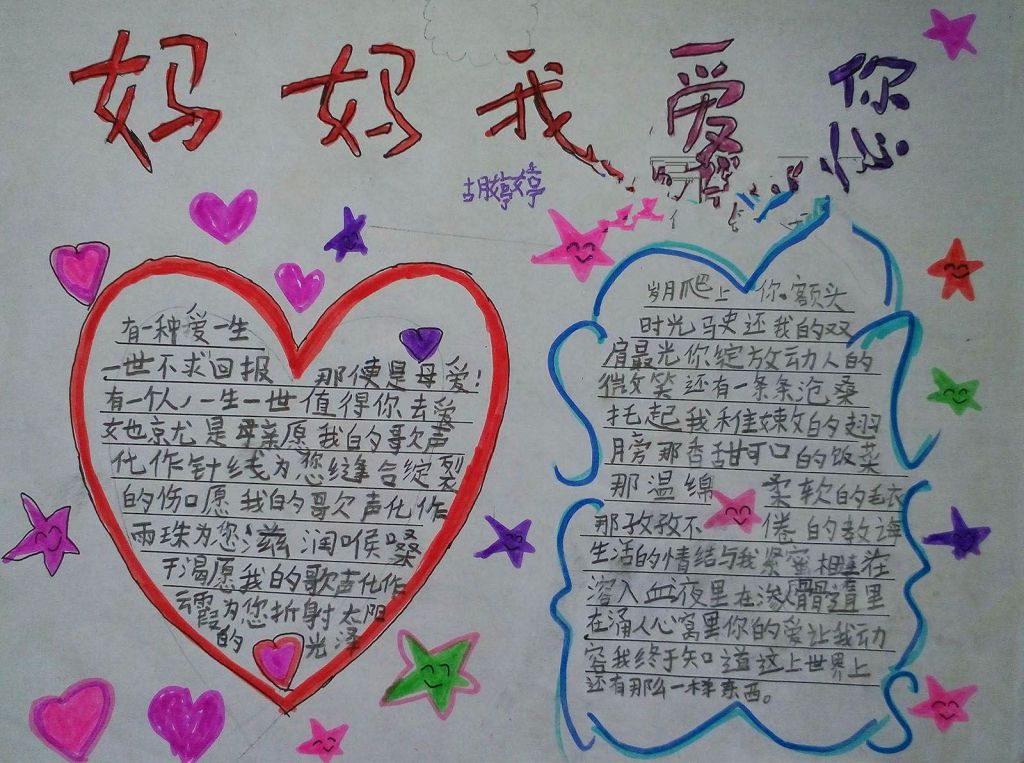 妈妈我爱您
胡婷婷
有一种爱一生
一世不求回报 那便是母爱！
有一个人，一生一世值得你去爱
她就是母亲愿我的歌声
化作针线为您缝合绽裂
的伤口愿我的歌声化作
雨珠为您滋润喉嗓
干渴愿我的歌声化作
云霞为您折射太阳
的光泽
岁月爬上你额头
时光马史还我的双
肩最光你绽放动人的
微笑还有一条条沧桑
托起我稚嫩的翅
膀那香甜可口的饭菜
那温绵柔软的毛衣
那孜孜不倦的教诲
生活的情结与我紧密相连在
溶入血液里在渗入骨髓里
在涌入心窝里你的爱让我动
容我终于知道这上世界上
还有那么一样东西。